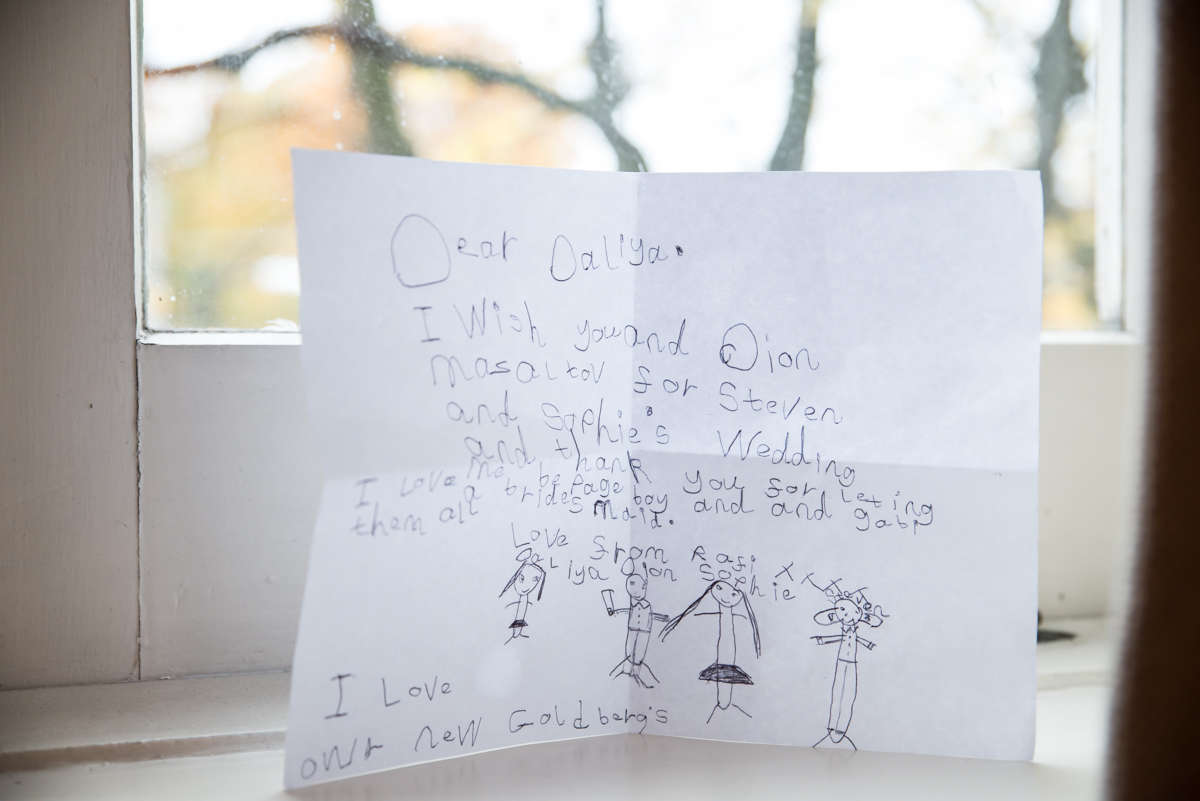 Dear Daliya.
I Wish you and Dion
masaltov for Steven
and Sophie's Wedding
and thank you for leting
me be Page boy and and gabi
a bridesmaid.
I Love
them all
Love from Rafi x x x
Daliya Dion Sophie Steven
I Love
owr new Goldberg's